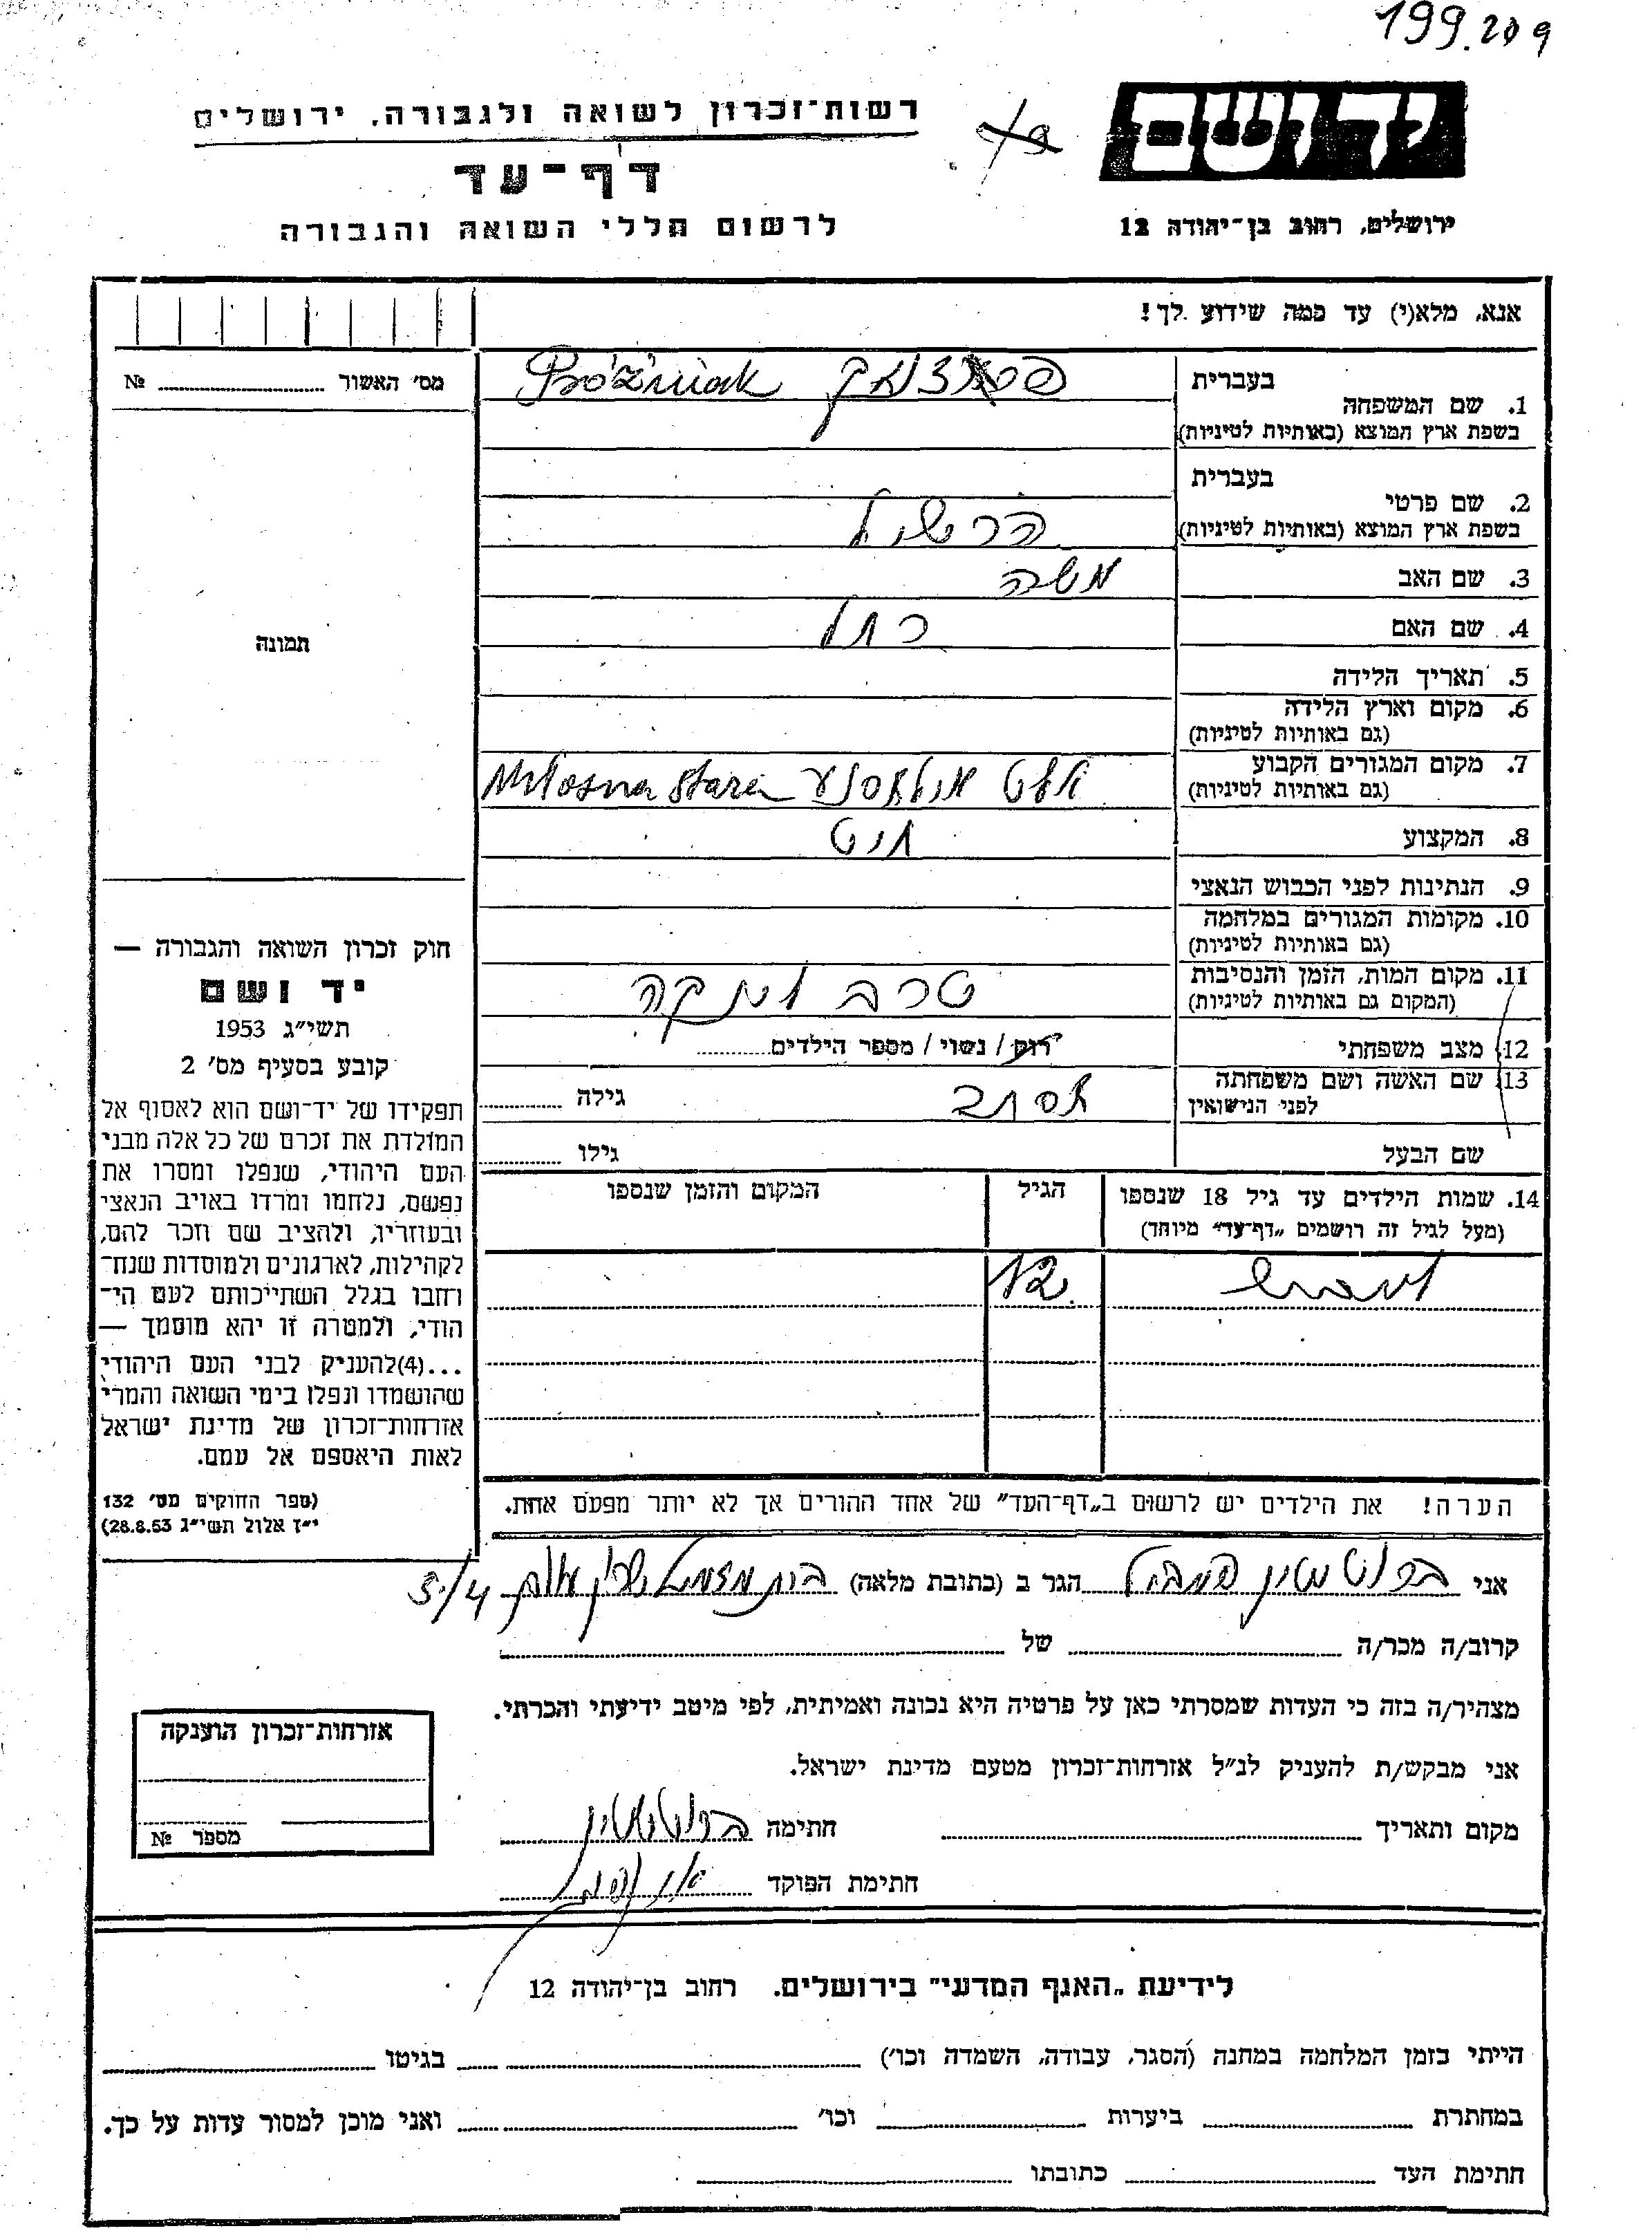 199.209
רשות־זכרון לשואה ולגבורה, ירושלים
דף־עד
לרשום חללי השואה והגבורה
יד ושם
ירושלים, רחוב בן־יהודה 12
אנא, מלא(י) עד כמה שידוע לך!
מס' האשור №
תמונה
בעברית
1. שם המשפחה
בשפת ארץ המוצא (באותיות לטיניות)
Próżniak
בעברית
2. שם פרטי
בשפת ארץ המוצא (באותיות לטיניות)
הרשיל
3. שם האב משה
4. שם האם רחל
5. תאריך הלידה
6. מקום וארץ הלידה
(גם באותיות לטיניות)
7. מקום המגורים הקבוע
(גם באותיות לטיניות)
אלט מילאסנע Milosna Stara
8. המקצוע חיט
9. הנתינות לפני הכבוש הנאצי
10. מקומות המגורים במלחמה
(גם באותיות לטיניות)
11. מקום המות, הזמן והנסיבות
(המקום גם באותיות לטיניות)
טרבלינקה
12. מצב משפחתי רווק / נשוי / מספר הילדים
13. שם האשה ושם משפחתה
לפני הנישואין
גילה
שם הבעל גילו
14. שמות הילדים עד גיל 18 שנספו
(מעל לגיל זה רושמים „דף־עד" מיוחד)
הגיל
המקום והזמן שנספו
12
הערה! את הילדים יש לרשום ב„דף־העד" של אחד ההורים אך לא יותר מפעם אחת.
חוק זכרון השואה והגבורה —
יד ושם
תשי״ג 1953
קובע בסעיף מס' 2
תפקידו של יד־ושם הוא לאסוף אל
המולדת את זכרם של כל אלה מבני
העם היהודי, שנפלו ומסרו את
נפשם, נלחמו ומרדו באויב הנאצי
ובעוזריו, ולהציב שם וזכר להם,
לקהילות, לארגונים ולמוסדות שנח־
רובו בגלל השתייכותם לעם הי־
הודי, ולמטרה זו יהא מוסמך —
...(4)להעניק לבני העם היהודי
שהושמדו ונפלו בימי השואה והמרי
אזרחות־זכרון של מדינת ישראל
לאות היאספם אל עמם.
(ספר החוקים מס' 132
י״ז אלול תשי״ג 28.8.53)
אני הגר ב (כתובת מלאה) 5/4
קרוב/ה מכר/ה של
מצהיר/ה בזה כי העדות שמסרתי כאן על פרטיה היא נכונה ואמיתית, לפי מיטב ידיעתי והכרתי.
אני מבקש/ת להעניק לנ״ל אזרחות־זכרון מטעם מדינת ישראל.
מקום ותאריך חתימה
חתימת הפוקד
אזרחות־זכרון הוענקה
מספר №
לידיעת „האגף המדעי" בירושלים. רחוב בן־יהודה 12
הייתי בזמן המלחמה במחנה (הסגר, עבודה, השמדה וכו') בגיטו
במחתרת ביערות וכו' ואני מוכן למסור עדות על כך.
חתימת העד כתובתו